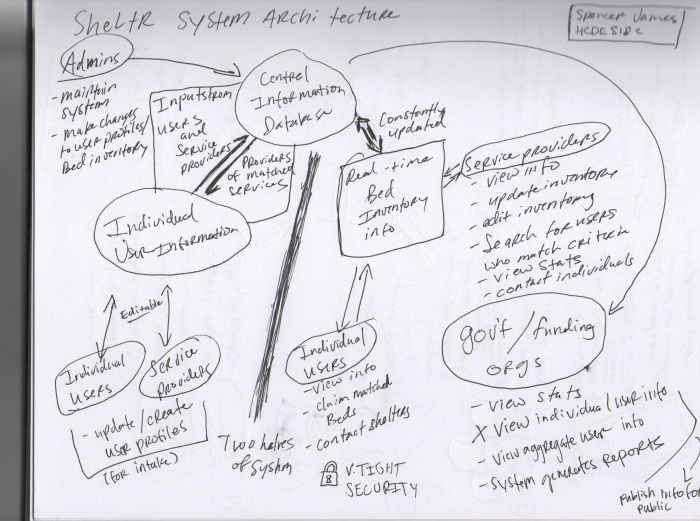 SheltR System Architecture
Spencer James
HCDE 518 C
Admins
- maintain
system
- make changes
to user profiles/
Bed inventory
Inputs from
users
and
Service
providers
Central
Information
Database
Providers
of matched
services
Constantly
updated
Individual
User Information
Real-time
Bed
Inventory
info
Service providers
- view info
- update inventory
- edit inventory
- Search for users
who match criteria
- view stats
- contact individuals
Editable
Individual
users
Service
Providers
- update/create
user profiles
(for intake)
Two halves
of System
Individual
users
- view info
- claim matched
Beds
- contact shelters
V. TIGHT
SECURITY
gov't / funding
orgs
- view stats
X view individual/user info
- view aggregate user info
- system generates reports
publish info for
public